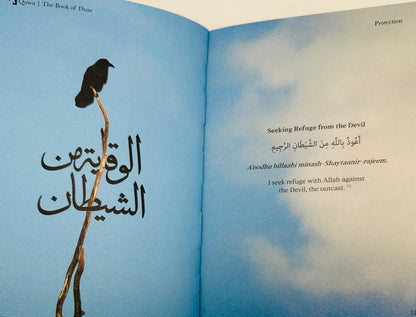 Quwa | The Book of Duas
الوقاية من
الشيطان
Protection
Seeking Refuge from the Devil
أَعُوذُ بِاللَّهِ مِنَ الشَّيْطَانِ الرَّجِيمِ
A'oodhu billaahi minash-Shaytaanir-rajeem.
I seek refuge with Allah against
the Devil, the outcast.